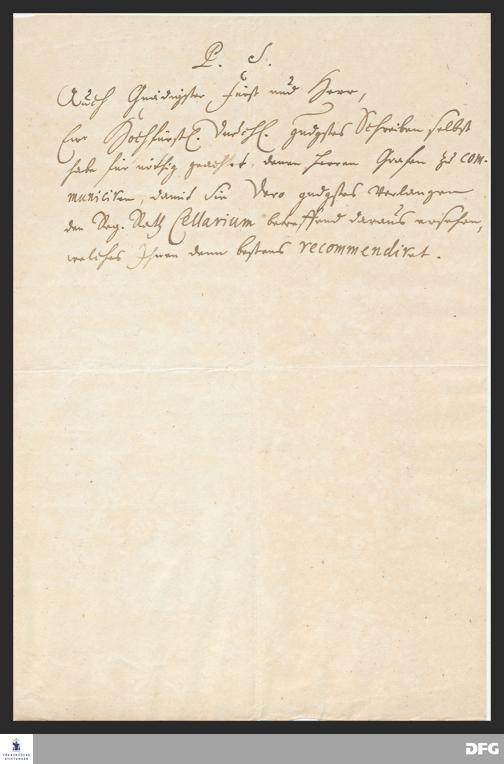 P. S.
Auch Gnädigster Fürst und Herr,
Ew. Hochfürstl. Durchl. gndgstes Schreiben selbst
habe für nöthig geachtet, denen Herren Grafen zu com-
municiren, damit Sie Dero gndgstes Verlangen
den Reg. Rath Cellarium betreffend daraus ersehen,
welches Ihnen denn bestens recommendiret.
FRANCKESCHE
STIFTUNGEN
DFG